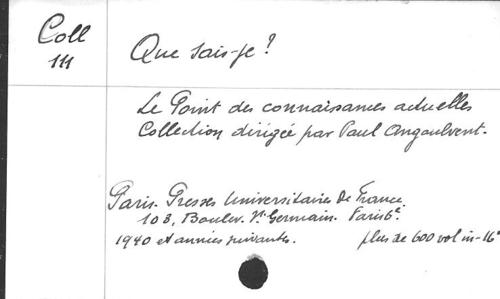 Coll
111
Que sais-je?
Le Point des connaissances actuelles
Collection dirigée par Paul Angoulvent.
Paris. Presses Universitaires de France.
108, Boulev. St Germain. Paris 6e.
1940 et années suivantes. plus de 600 vol in-16°